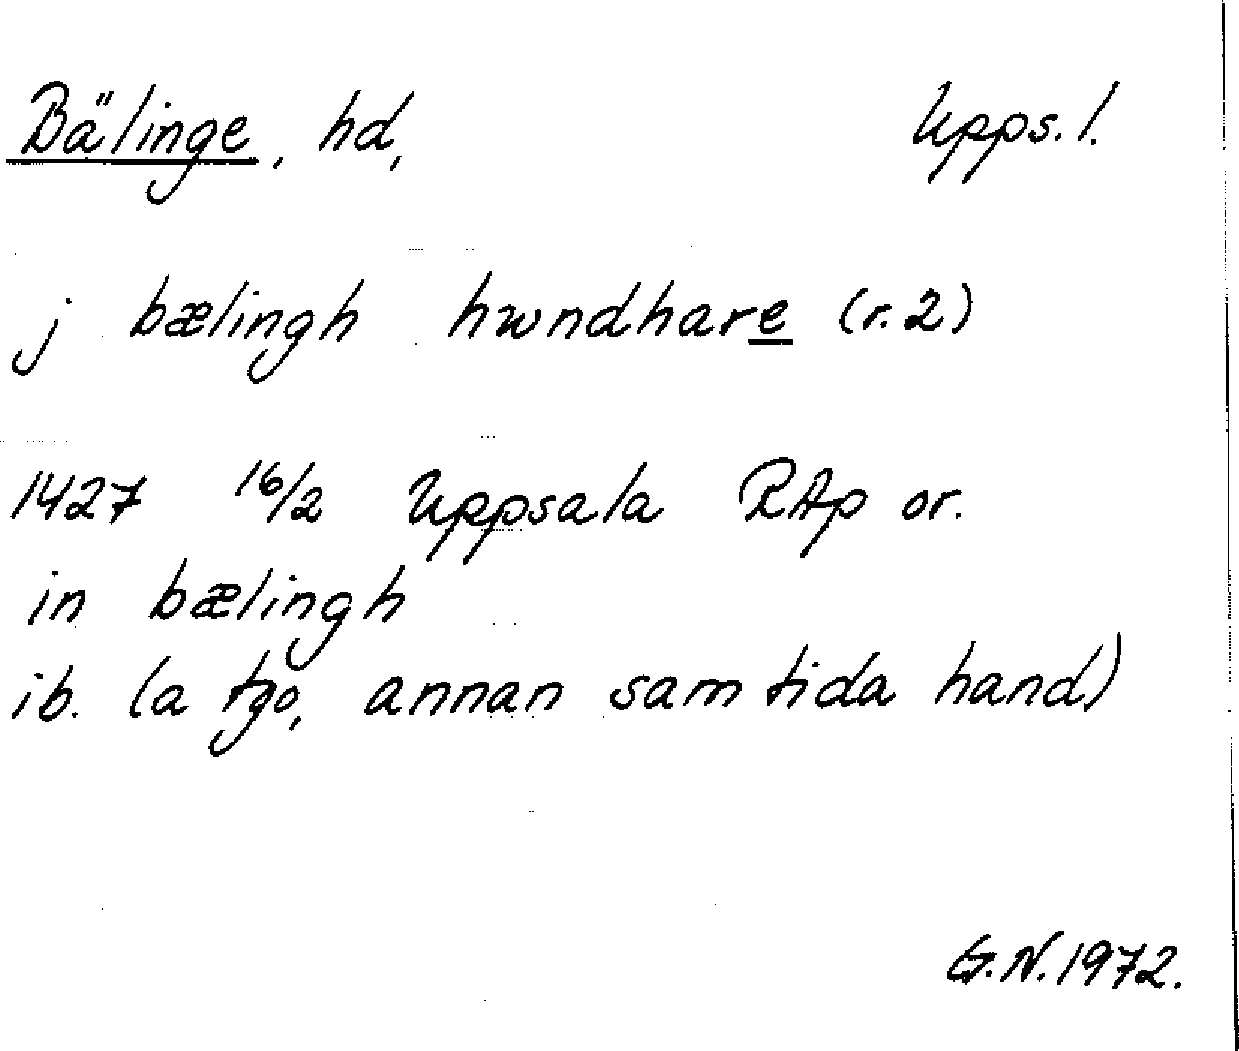 Bälinge, hd, Upps. l.
j bælingh hwndhare (r. 2)
1427 16/2 Uppsala RAp or.
in bælingh
ib. (a tgo, annan samtida hand)
G.N. 1972.